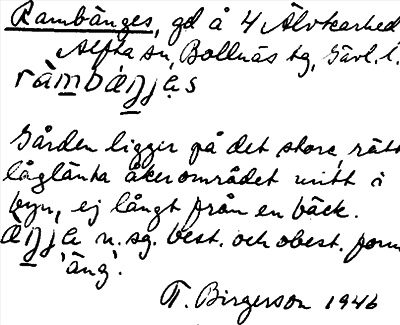 Rambänges, gd å 4 Älvkarhed
Alfta sn, Bollnäs tg, Gävl. l.
ràmbáŋjəs
Gården ligger på det stora, rätt
låglänta åkerområdet mitt i
byn, ej långt från en bäck.
äŋjə n. sg. best. och obest. form
'äng'.
T. Birgerson 1946